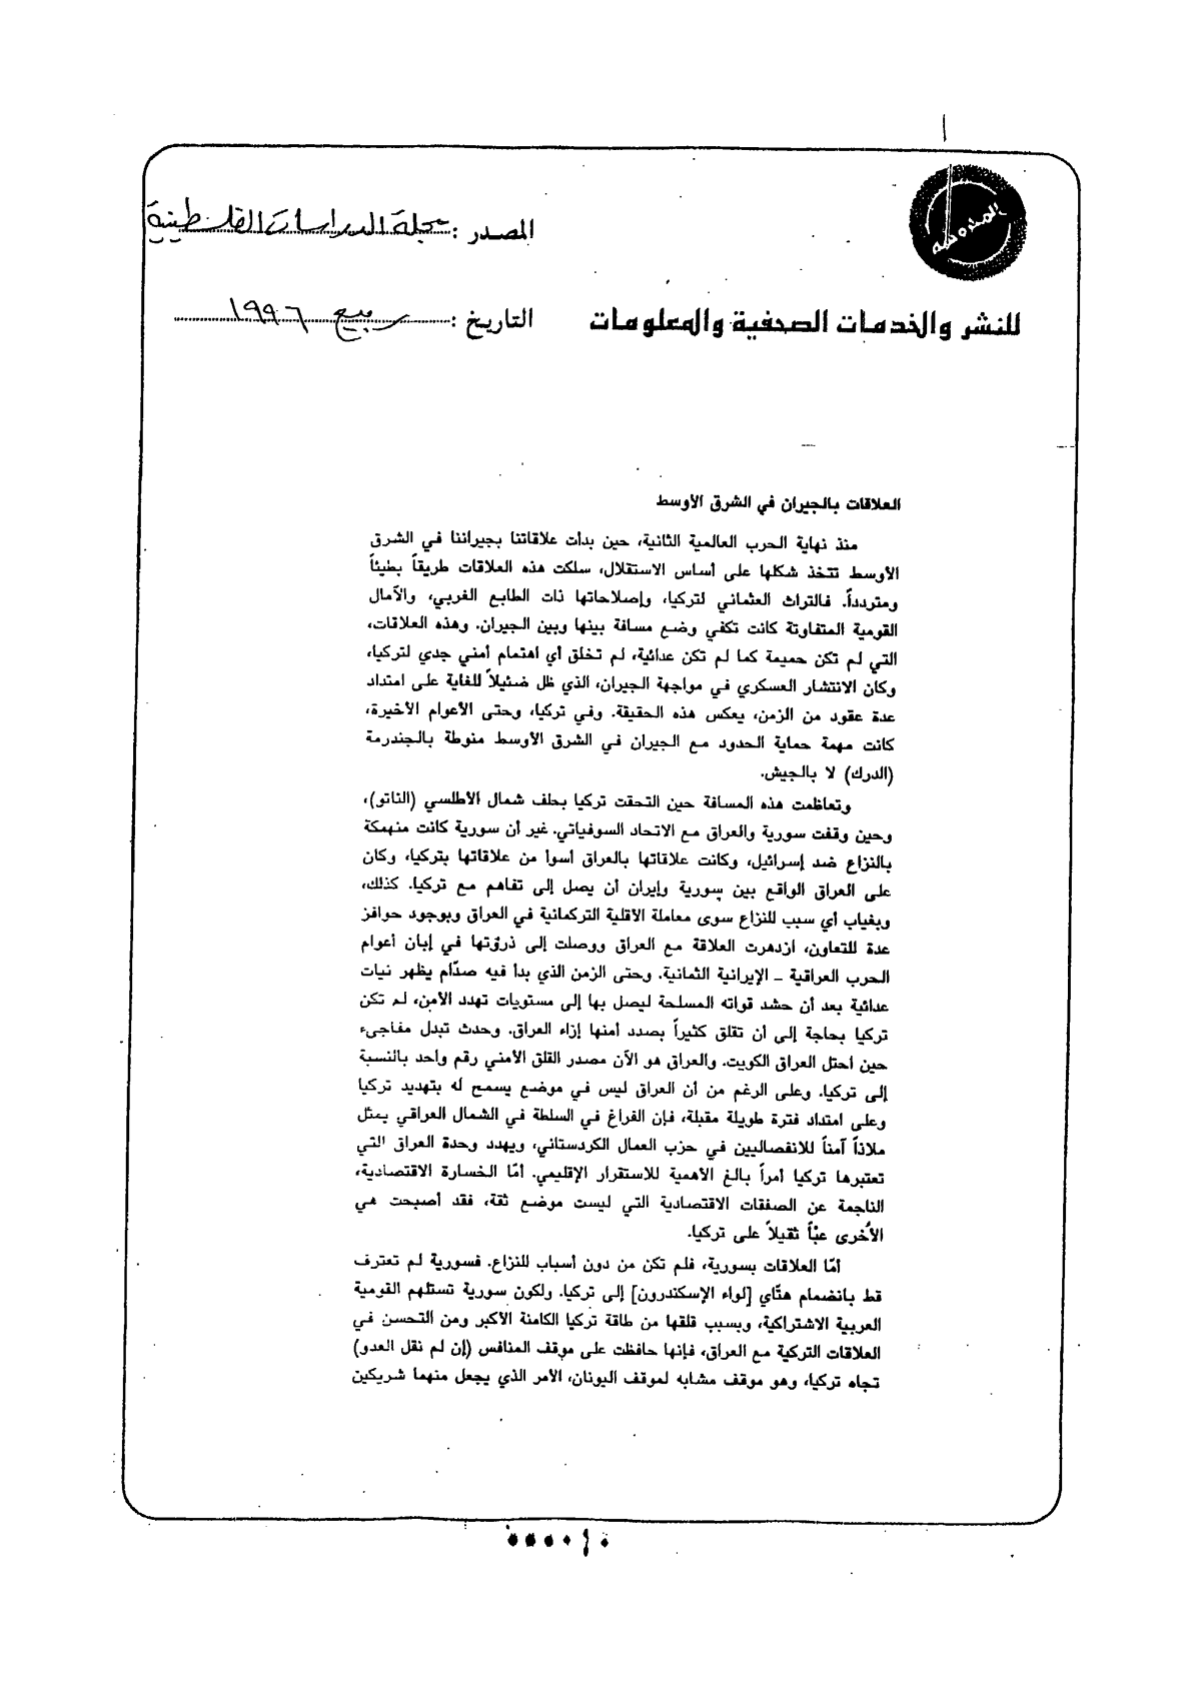 المدوسه
المصدر : مجلة الدراسات الفلسطينية
للنشر والخدمات الصحفية والمعلومات
التاريخ : ربيع ١٩٩٦
العلاقات بالجيران في الشرق الأوسط
منذ نهاية الحرب العالمية الثانية، حين بدأت علاقاتنا بجيراننا في الشرق
الأوسط تتخذ شكلها على أساس الاستقلال، سلكت هذه العلاقات طريقاً بطيئاً
ومتردداً. فالتراث العثماني لتركيا، وإصلاحاتها ذات الطابع الغربي، والآمال
القومية المتفاوتة كانت تكفي وضع مسافة بينها وبين الجيران. وهذه العلاقات،
التي لم تكن حميمة كما لم تكن عدائية، لم تخلق أي اهتمام أمني جدي لتركيا،
وكان الانتشار العسكري في مواجهة الجيران، الذي ظل ضئيلاً للغاية على امتداد
عدة عقود من الزمن، يعكس هذه الحقيقة. وفي تركيا، وحتى الأعوام الأخيرة،
كانت مهمة حماية الحدود مع الجيران في الشرق الأوسط منوطة بالجندرمة
(الدرك) لا بالجيش.
وتعاظمت هذه المسافة حين التحقت تركيا بحلف شمال الأطلسي (الناتو)،
وحين وقفت سورية والعراق مع الاتحاد السوفياتي. غير أن سورية كانت منهمكة
بالنزاع ضد إسرائيل، وكانت علاقاتها بالعراق أسوأ من علاقاتها بتركيا، وكان
على العراق الواقع بين سورية وإيران أن يصل إلى تفاهم مع تركيا. كذلك،
وبغياب أي سبب للنزاع سوى معاملة الأقلية التركمانية في العراق وبوجود حوافز
عدة للتعاون، ازدهرت العلاقة مع العراق ووصلت إلى ذروتها في إبان أعوام
الحرب العراقية ــ الإيرانية الثمانية. وحتى الزمن الذي بدأ فيه صدّام يظهر نيات
عدائية بعد أن حشد قواته المسلحة ليصل بها إلى مستويات تهدد الأمن، لم تكن
تركيا بحاجة إلى أن تقلق كثيراً بصدد أمنها إزاء العراق. وحدث تبدل مفاجىء
حين احتل العراق الكويت. والعراق هو الآن مصدر القلق الأمني رقم واحد بالنسبة
إلى تركيا. وعلى الرغم من أن العراق ليس في موضع يسمح له بتهديد تركيا
وعلى امتداد فترة طويلة مقبلة، فإن الفراغ في السلطة في الشمال العراقي يمثل
ملاذاً آمناً للانفصاليين في حزب العمال الكردستاني، ويهدد وحدة العراق التي
تعتبرها تركيا أمراً بالغ الأهمية للاستقرار الإقليمي. أمّا الخسارة الاقتصادية،
الناجمة عن الصفقات الاقتصادية التي ليست موضع ثقة، فقد أصبحت هي
الأخرى عبئاً ثقيلاً على تركيا.
أمّا العلاقات بسورية، فلم تكن من دون أسباب للنزاع. فسورية لم تعترف
قط بانضمام هتّاي [لواء الإسكندرون] إلى تركيا. ولكون سورية تستلهم القومية
العربية الاشتراكية، وبسبب قلقها من طاقة تركيا الكامنة الأكبر ومن التحسن في
العلاقات التركية مع العراق، فإنها حافظت على موقف المنافس (إن لم نقل العدو)
تجاه تركيا، وهو موقف مشابه لموقف اليونان، الأمر الذي يجعل منهما شريكين